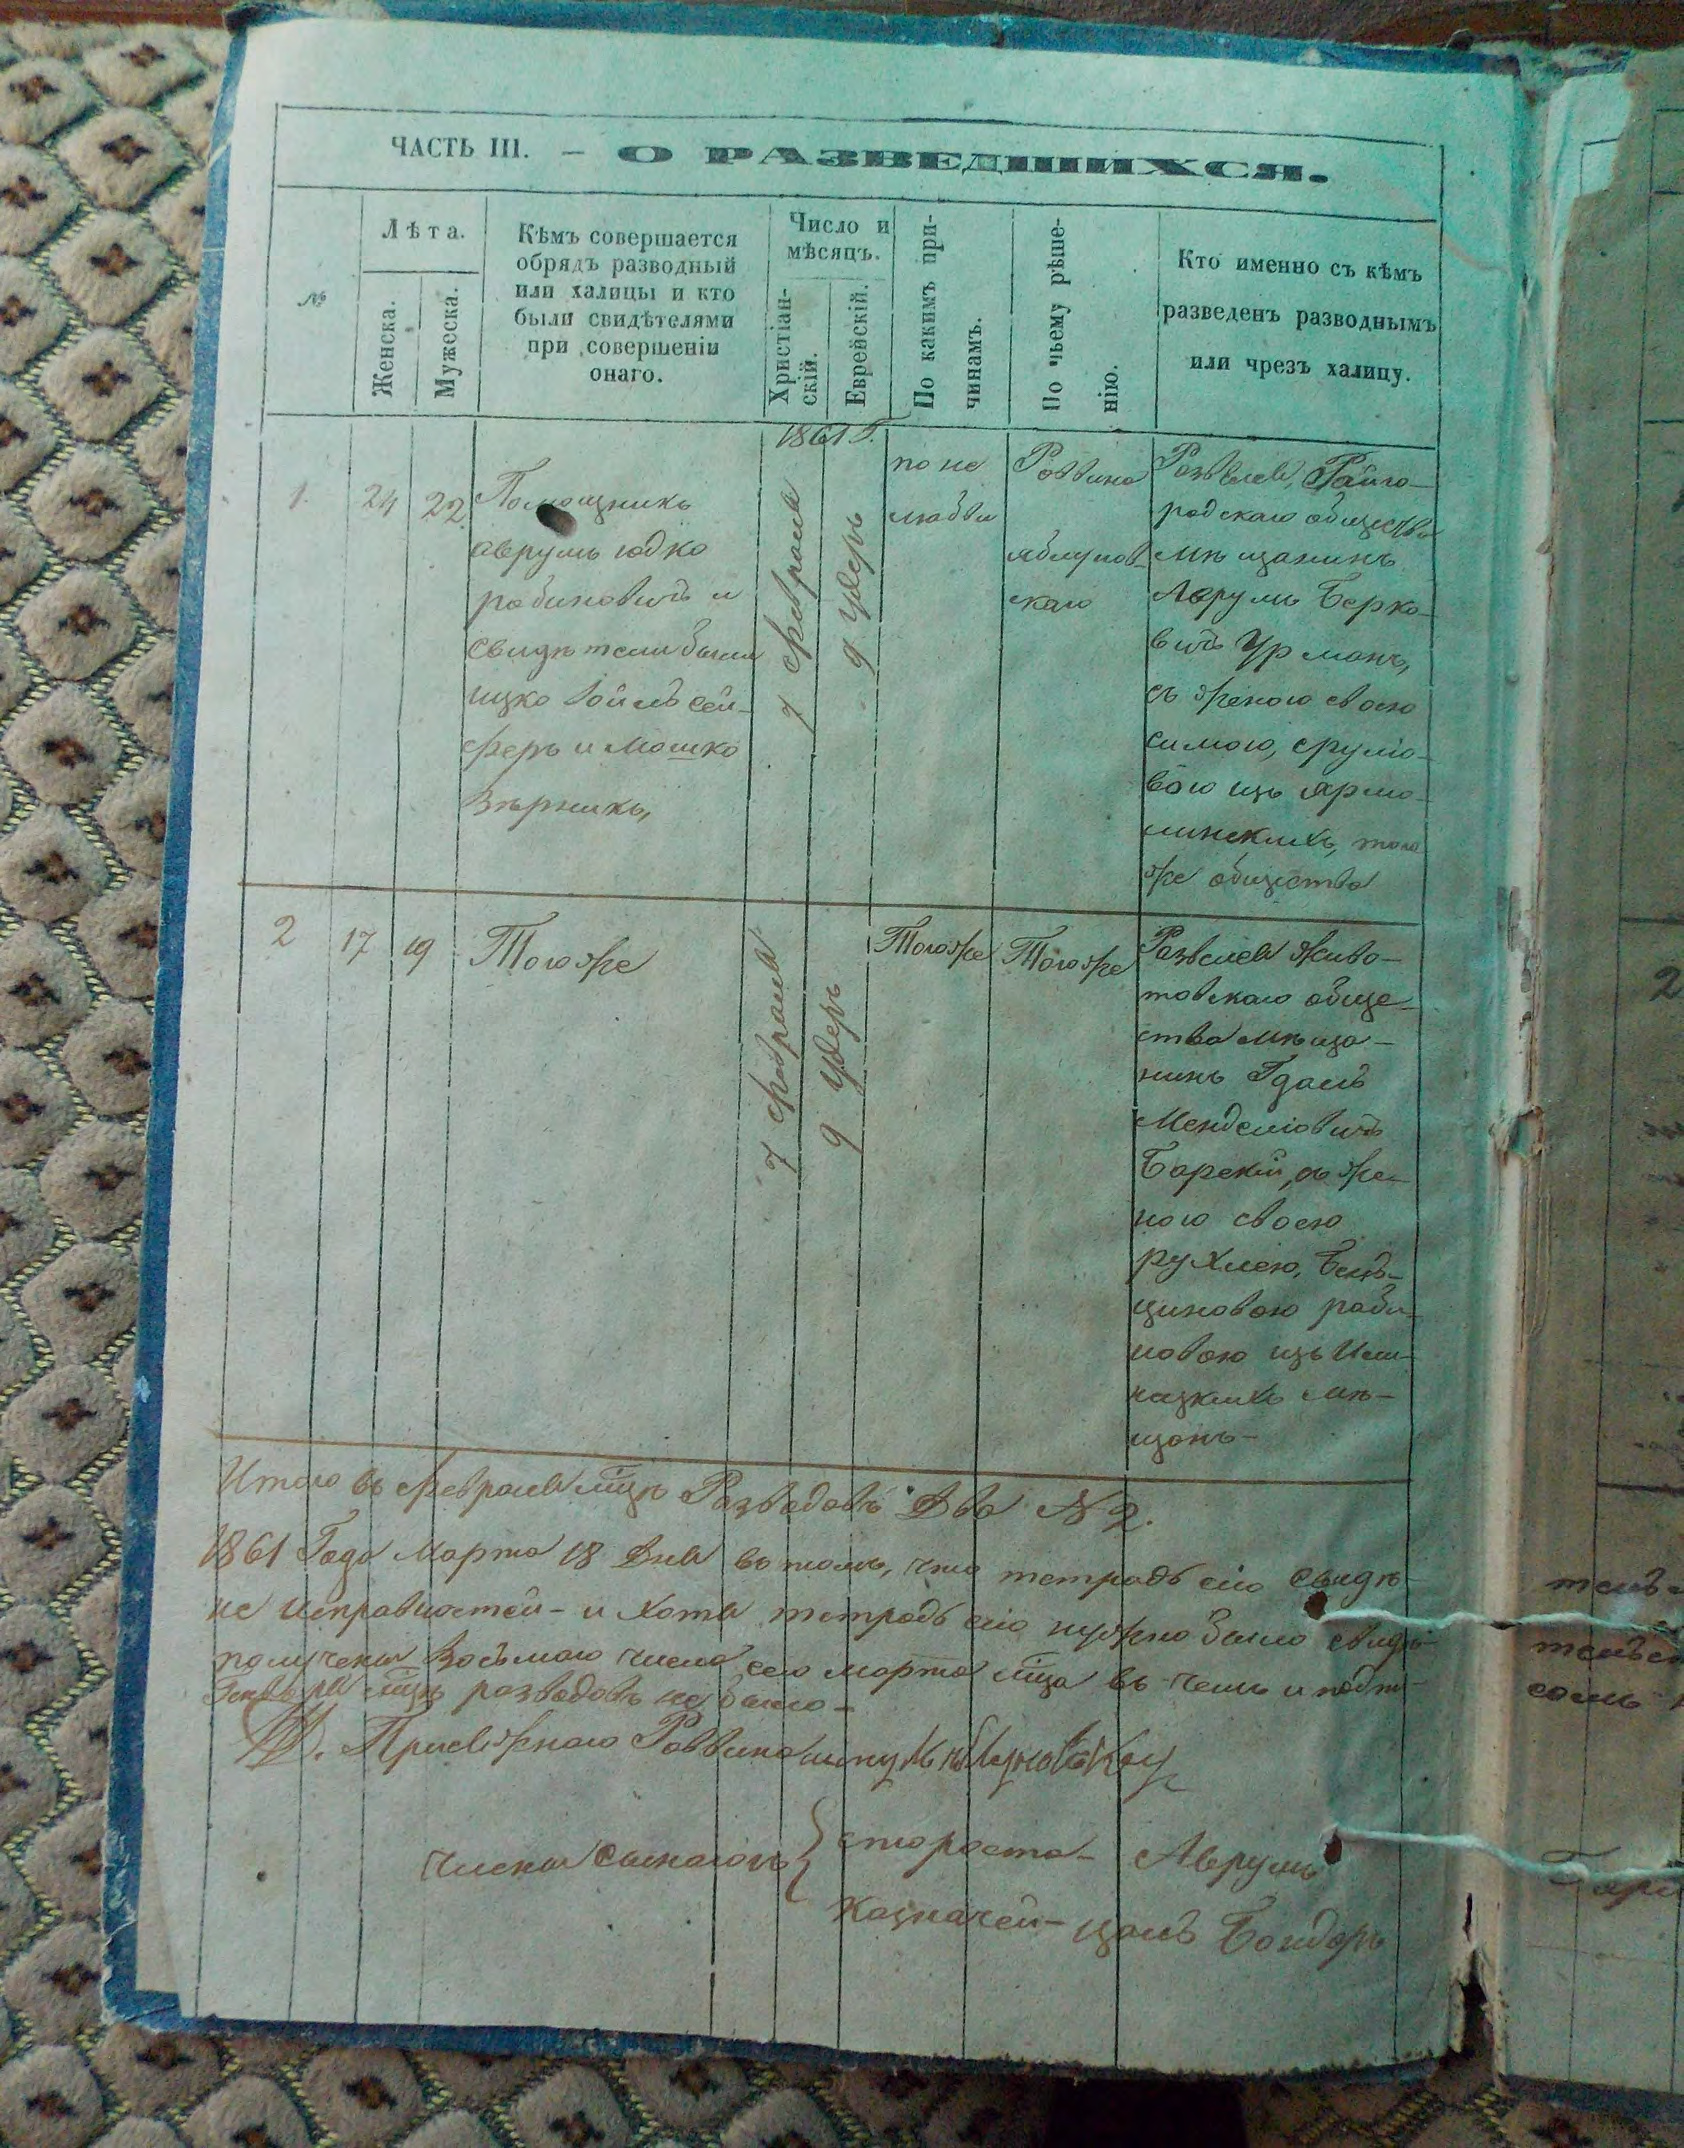 ЧАСТЬ III. — О РАЗВЕДШИХСЯ.
№
Лѣта.
Женска.
Мужеска.
Кѣмъ совершается
обрядъ разводный
или халицы и кто
были свидѣтелями
при совершеніи
онаго.
Число и
мѣсяцъ.
Христіан-
скій.
Еврейскій.
По какимъ при-
чинамъ.
По чьему рѣше-
нію.
Кто именно съ кѣмъ
разведенъ разводнымъ
или чрезъ халицу.
1861 Г.
1.
24
22
Помощникъ
аврумъ юдко
рабиновичъ и
свидѣтели были
ицко
феръ и Мошко
Вѣрникъ,
7 февраля
9 Удеръ
по не
любви
Раввина
яблунов-
скаго
Развелся, Райго-
родскаго общества
мѣщанинъ
Аврумъ Берко-
вичъ Урманъ,
съ женою своею
симою, срулю-
вою изъ ярмо-
линскихъ, того
же общества
2
17
19
Тогоже
7 февраля
9 Удеръ
Тогоже
Тогоже
Развелся Живо-
товскаго обще-
ства мѣща-
нинъ Гдаль
Менделіовичъ
Барскій, съ же-
ною своею
рухлею, Бень-
ціновою раби-
новою изъ Иль-
нецкихъ мѣ-
щанъ-
Итого въ февралѣ мцѣ Разводовъ Два № 2.
1861 Года Марта 18 Дня въ томъ, что тетрадь сію свидѣ-
не исправностей - и хотя тетрадь сію нужно было свидѣ-
получены Восьмаго числа сего марта мца въ чемъ и подпи-
Генваря мцѣ разводовъ не было -
Присяжнаго Раввина
члены синагоги { староста - Аврумъ
казначей - цаль Бондарь
2